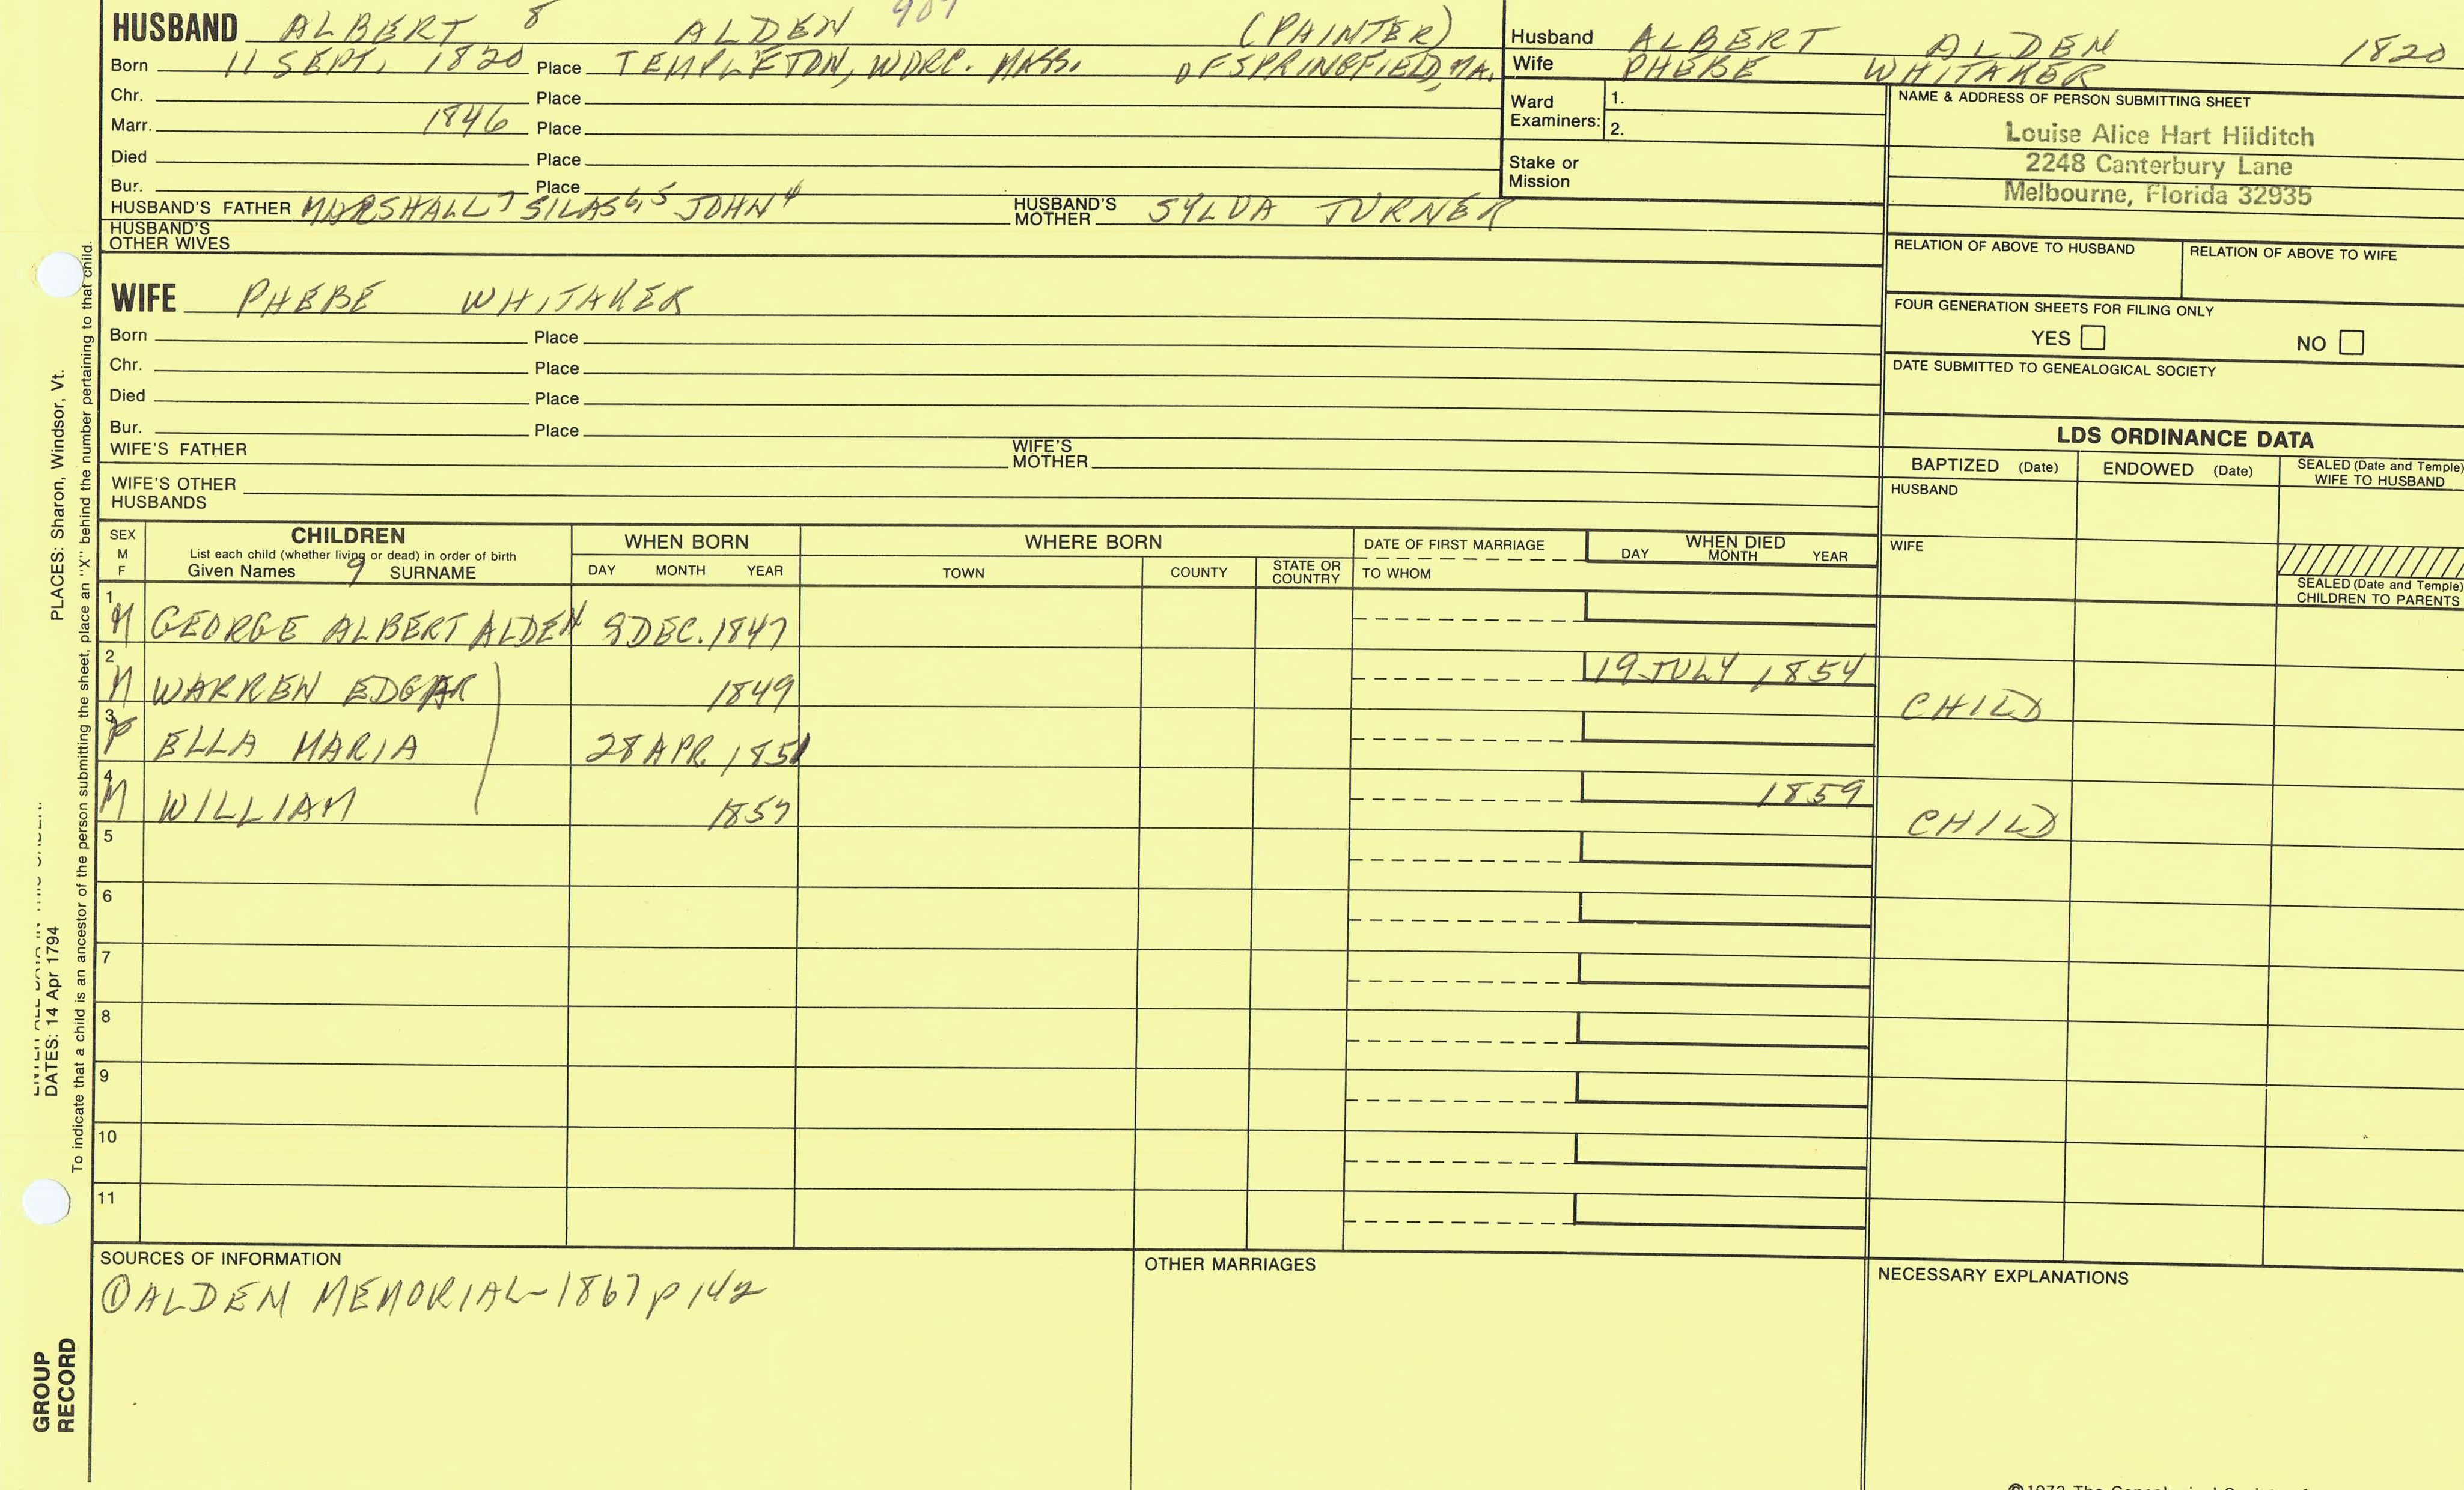 HUSBAND ALBERT 8 ALDEN 907 (PAINTER)
Born 11 SEPT. 1820 Place TEMPLETON, WORC. MASS. OF SPRINGFIELD, MA.
Chr. Place
Marr. 1846 Place
Died Place
Bur. Place
HUSBAND'S FATHER MARSHALL 7 SILAS 6,5 JOHN 4 HUSBAND'S MOTHER SYLVA TURNER
HUSBAND'S OTHER WIVES
Husband ALBERT ALDEN 1820
Wife PHEBE WHITAKER
Ward Examiners: 1.
2.
Stake or Mission
NAME & ADDRESS OF PERSON SUBMITTING SHEET
Louise Alice Hart Hilditch
2248 Canterbury Lane
Melbourne, Florida 32935
RELATION OF ABOVE TO HUSBAND RELATION OF ABOVE TO WIFE
FOUR GENERATION SHEETS FOR FILING ONLY
YES NO
DATE SUBMITTED TO GENEALOGICAL SOCIETY
WIFE PHEBE WHITAKER
Born Place
Chr. Place
Died Place
Bur. Place
WIFE'S FATHER WIFE'S MOTHER
WIFE'S OTHER HUSBANDS
LDS ORDINANCE DATA
BAPTIZED (Date) ENDOWED (Date) SEALED (Date and Temple) WIFE TO HUSBAND
HUSBAND
WIFE
SEALED (Date and Temple) CHILDREN TO PARENTS
SEX M F CHILDREN WHEN BORN WHERE BORN DATE OF FIRST MARRIAGE WHEN DIED
List each child (whether living or dead) in order of birth
Given Names 9 SURNAME DAY MONTH YEAR TOWN COUNTY STATE OR COUNTRY TO WHOM DAY MONTH YEAR
1 M GEORGE ALBERT ALDEN 9 DEC. 1847
2 M WARREN EDGAR 1849 19 JULY 1854 CHILD
3 F ELLA MARIA 28 APR. 1851
4 M WILLIAM 1857 1859 CHILD
5
6
7
8
9
10
11
SOURCES OF INFORMATION OTHER MARRIAGES NECESSARY EXPLANATIONS
① ALDEN MEMORIAL-1867 p 142
PLACES: Sharon, Windsor, Vt.
DATES: 14 Apr 1794
To indicate that a child is an ancestor of the person submitting the sheet, place an "X" behind the number pertaining to that child.
GROUP
RECORD